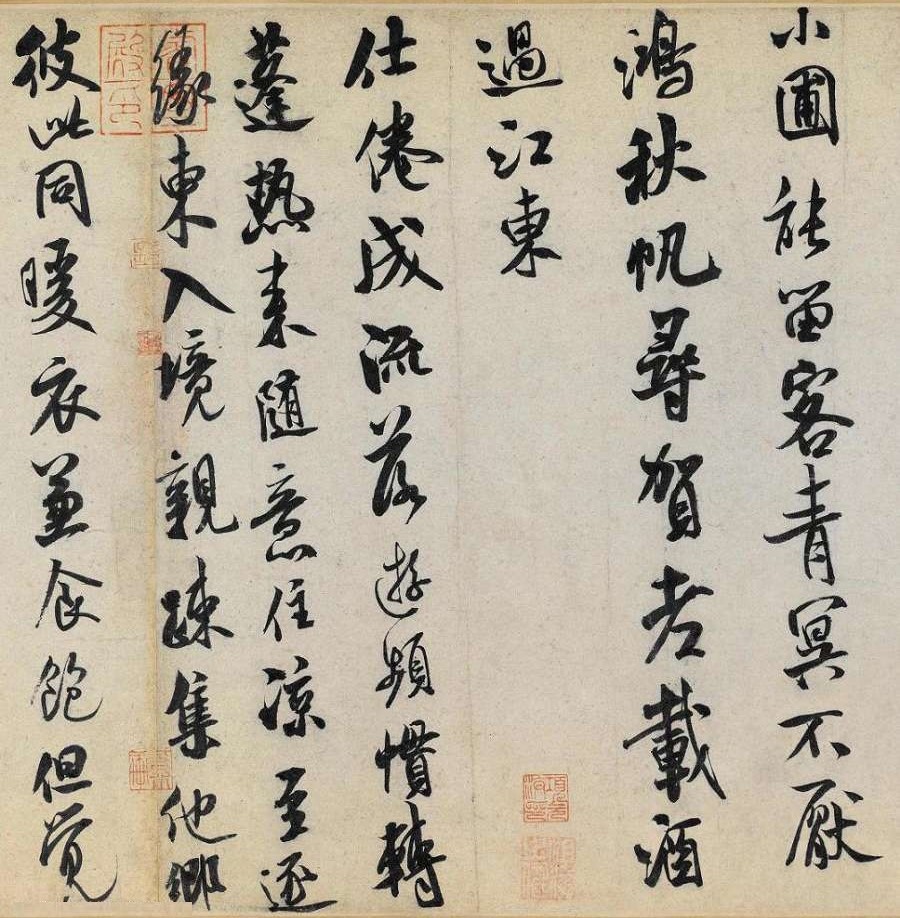 小圃能留客青冥不厭
鴻秋帆尋賀老載酒
過江東
仕倦成流落遊頻慣轉
蓬熱来隨意住涼至逐
緣東入境親疎集他鄉
彼此同暖衣兼食飽但覺